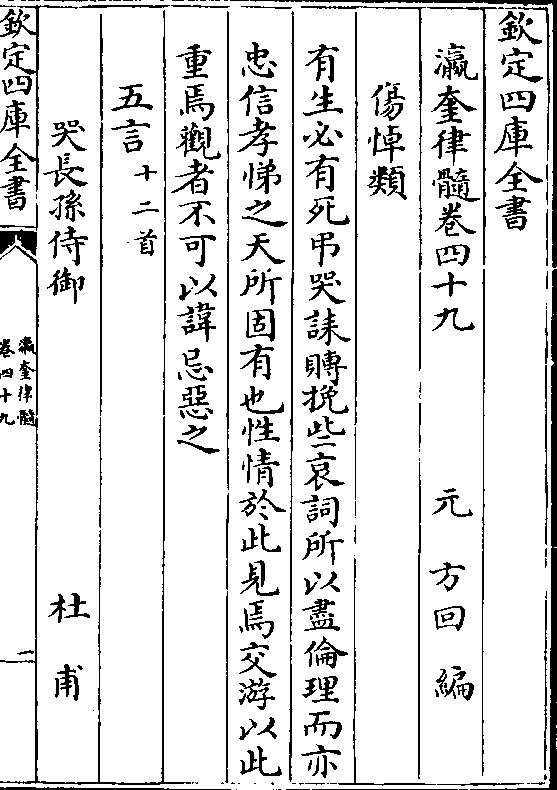 欽定四庫全書
瀛奎律髓卷四十九 元 方回 編
傷悼類
有生必有死弔哭誄賻挽些哀詞所以盡倫理而亦
忠信孝悌之天所固有也性情於此見焉交游以此
重焉觀者不可以諱忌惡之
五言十二首
哭長孫侍御 杜甫
欽定四庫全書
瀛奎律髓
卷四十九